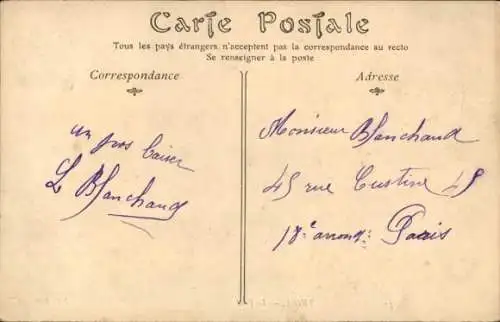 Carte Postale
Tous les pays étrangers n'acceptent pas la correspondance au recto
Se renseigner à la poste
Correspondance
Adresse
un gros baiser
L Blanchaud
Monsieur Blanchaud
45 rue Custine 45
18e arrond: Paris